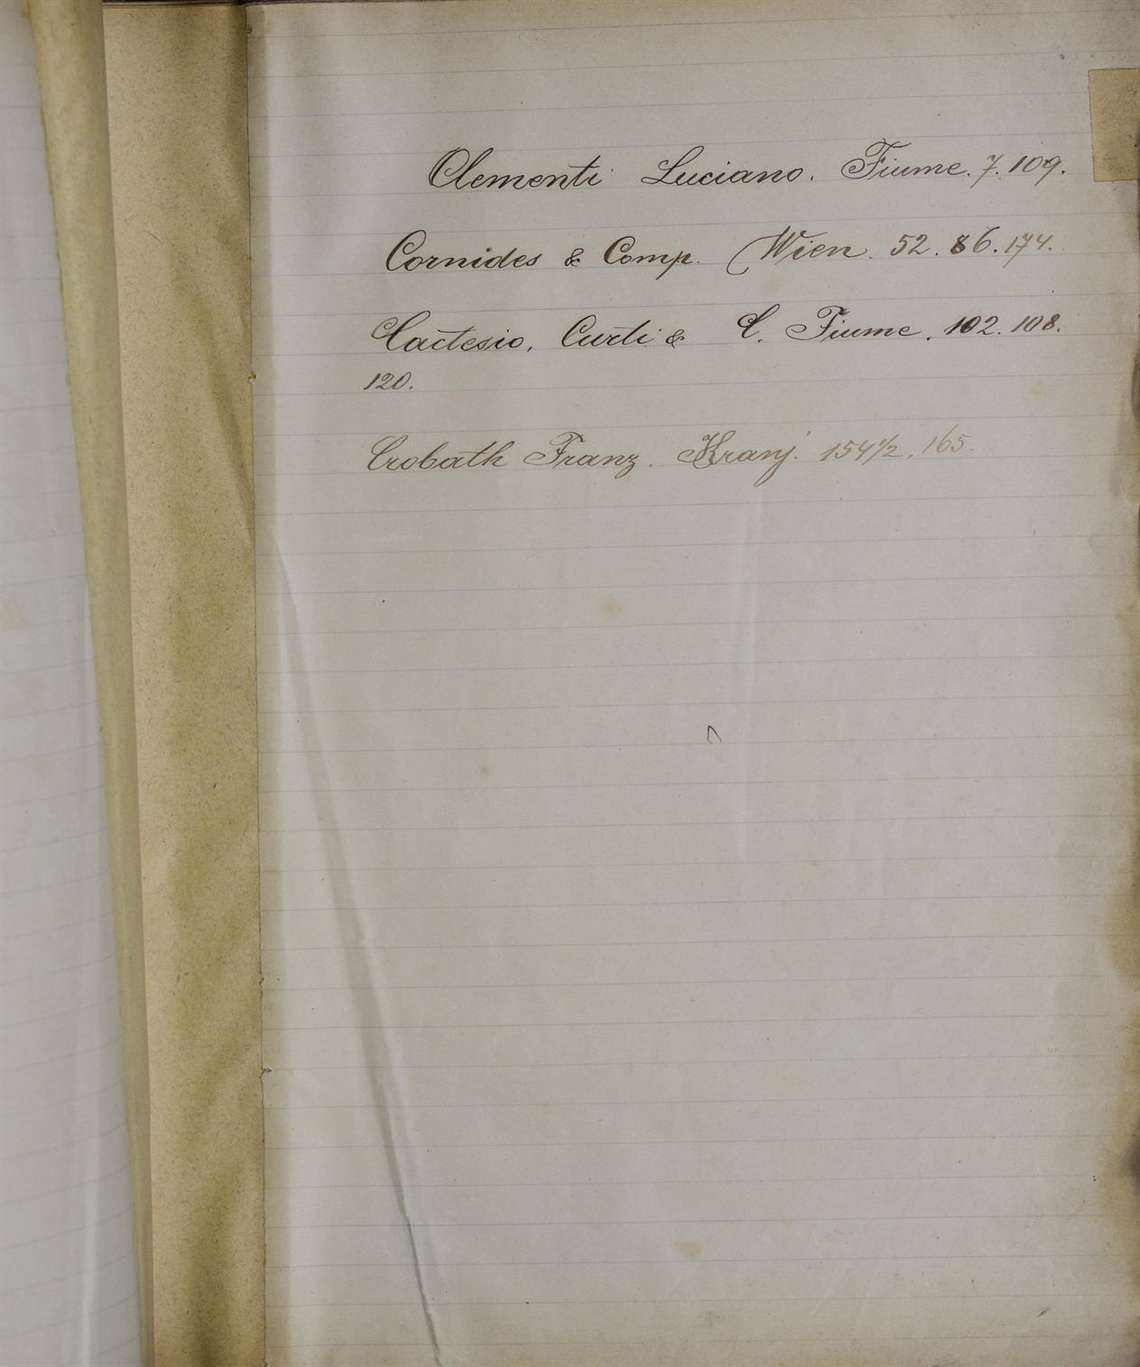 Clementi Luciano. Fiume. 7. 109.
Cornides & Comp. (Wien. 52. 86. 174.
Cactesio, Curti & C. Fiume. 102. 108.
120.
Crobath Franz. Kranj. 154½. 165.